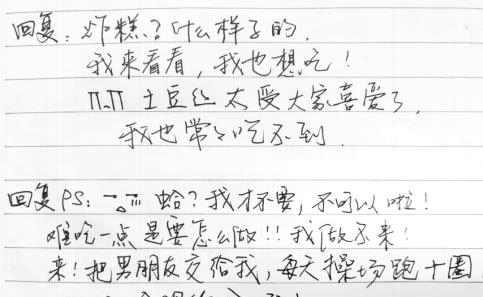 回复：炸糕？什么样子的，
我来看看，我也想吃！
π.π 土豆丝太受大家喜爱了，
我也常常吃不到.
回复PS：蛤？我才不要，不可以啦！
难吃一点是要怎么做!! 我做不来！
来！把男朋友交给我，每天操场跑十圈